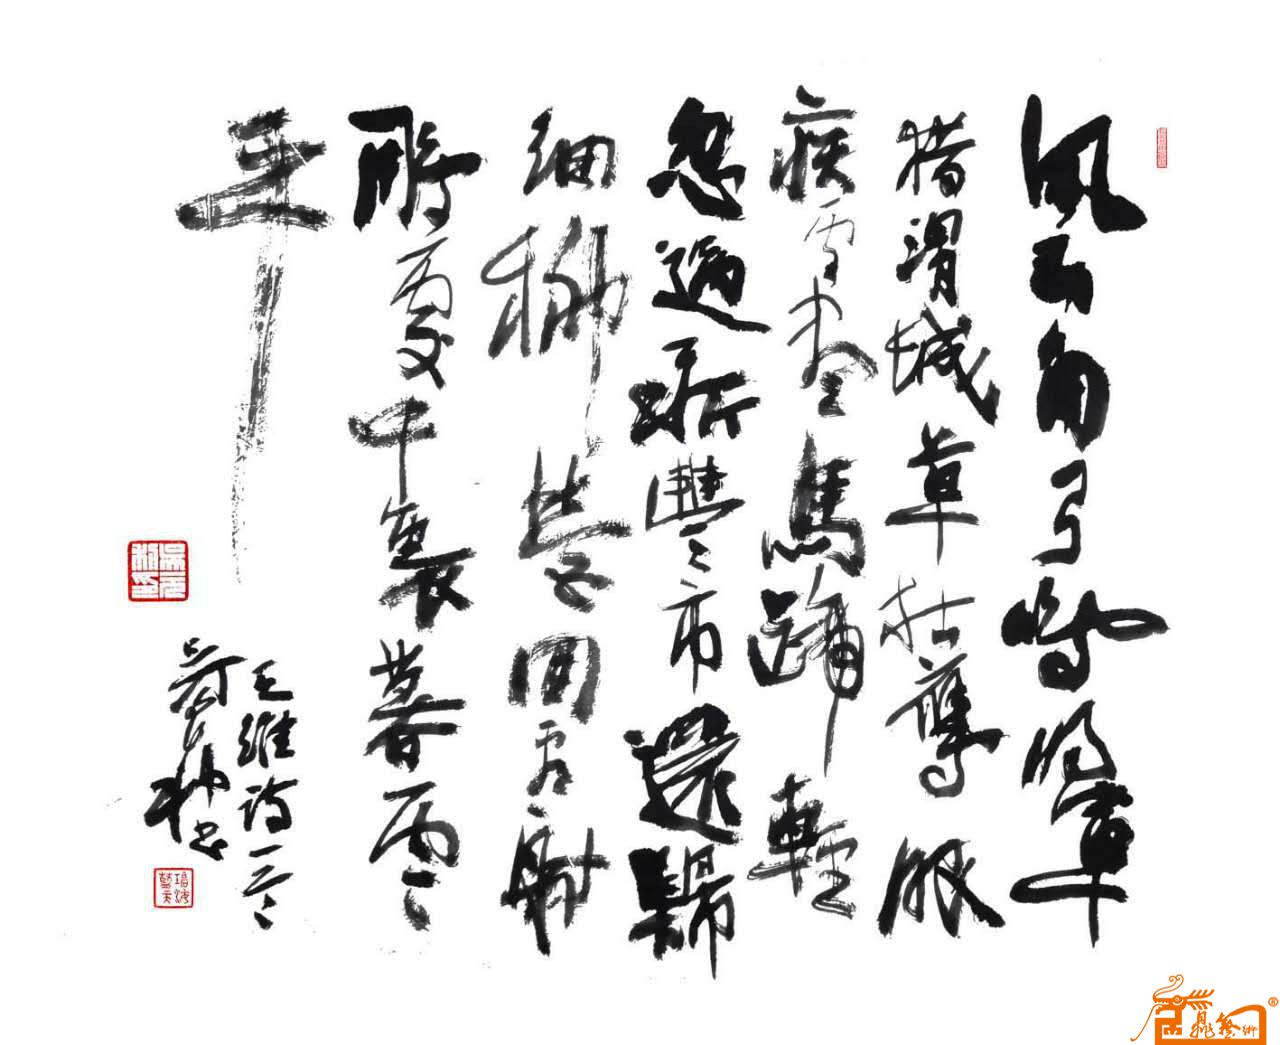 風勁角弓鳴將軍
猎渭城草枯鷹眼
疾雪盡馬蹄輕
忽過新豐市還歸
細柳營回看射
鵰處千里暮雲
平
王維詩一首